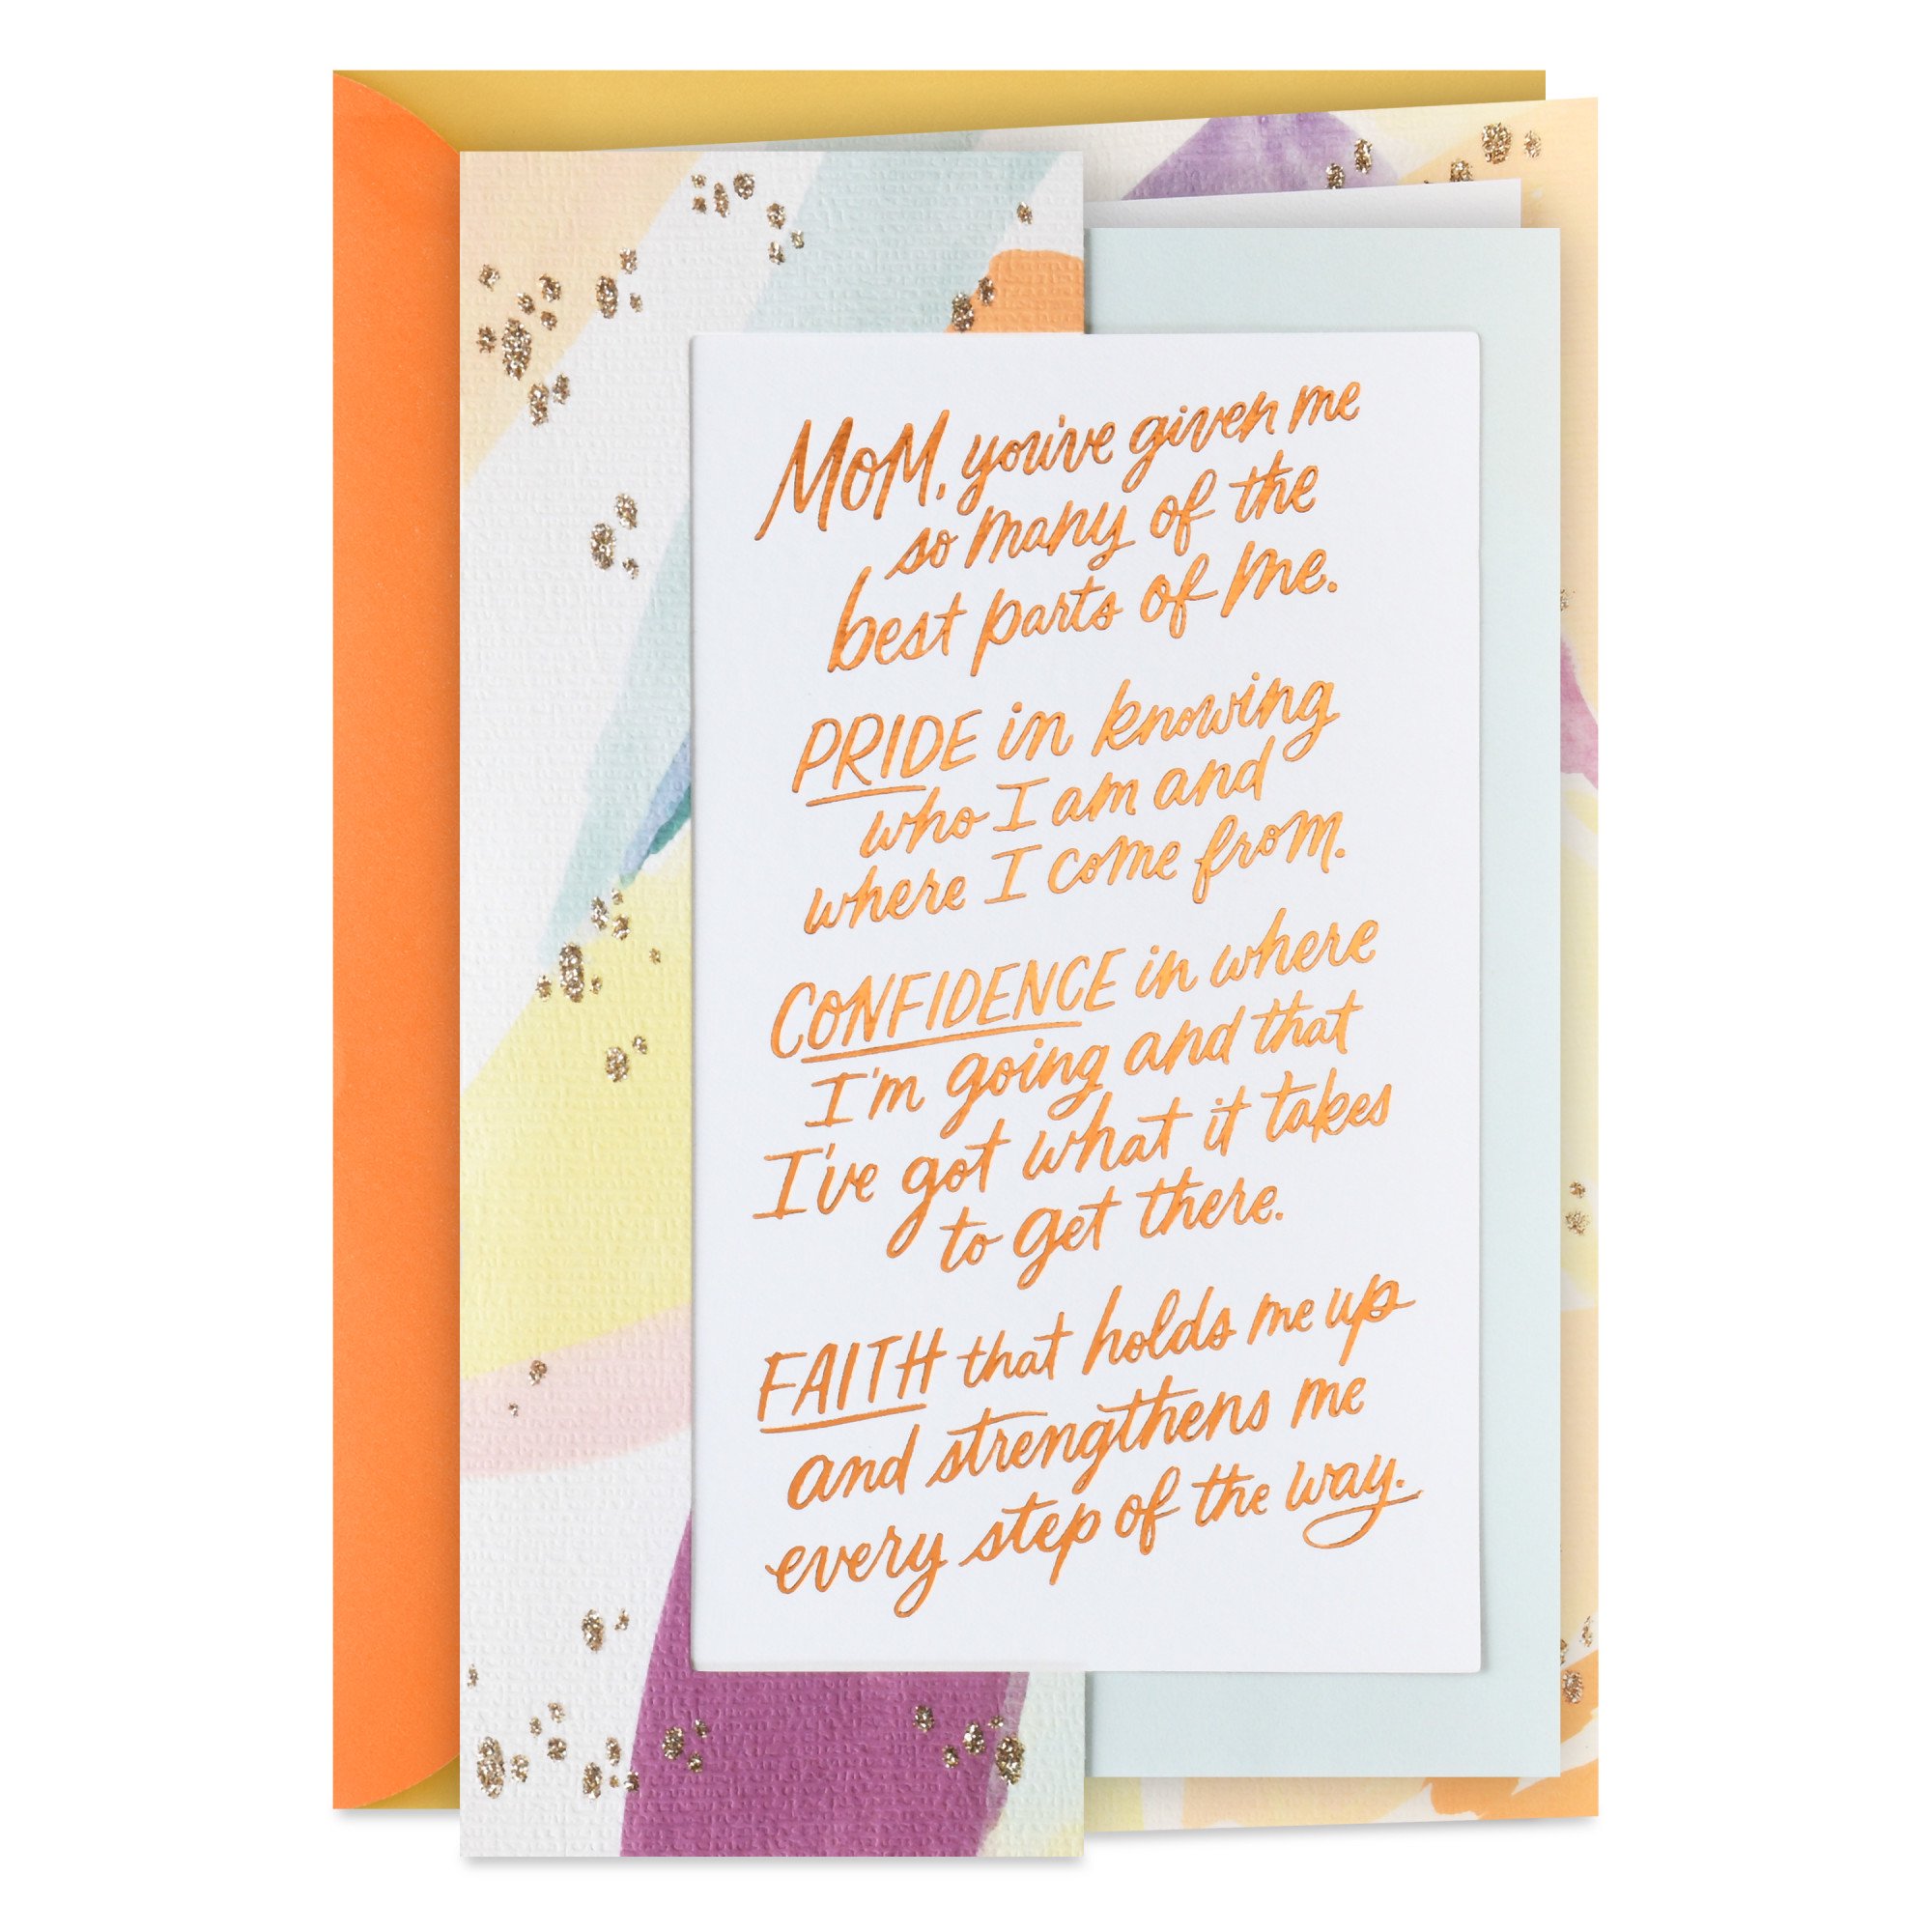 MOM, you've given me
so many of the
best parts of me.
PRIDE in knowing
who I am and
where I come from.
CONFIDENCE in where
I'm going and that
I've got what it takes
to get there.
FAITH that holds me up
and strengthens me
every step of the way.